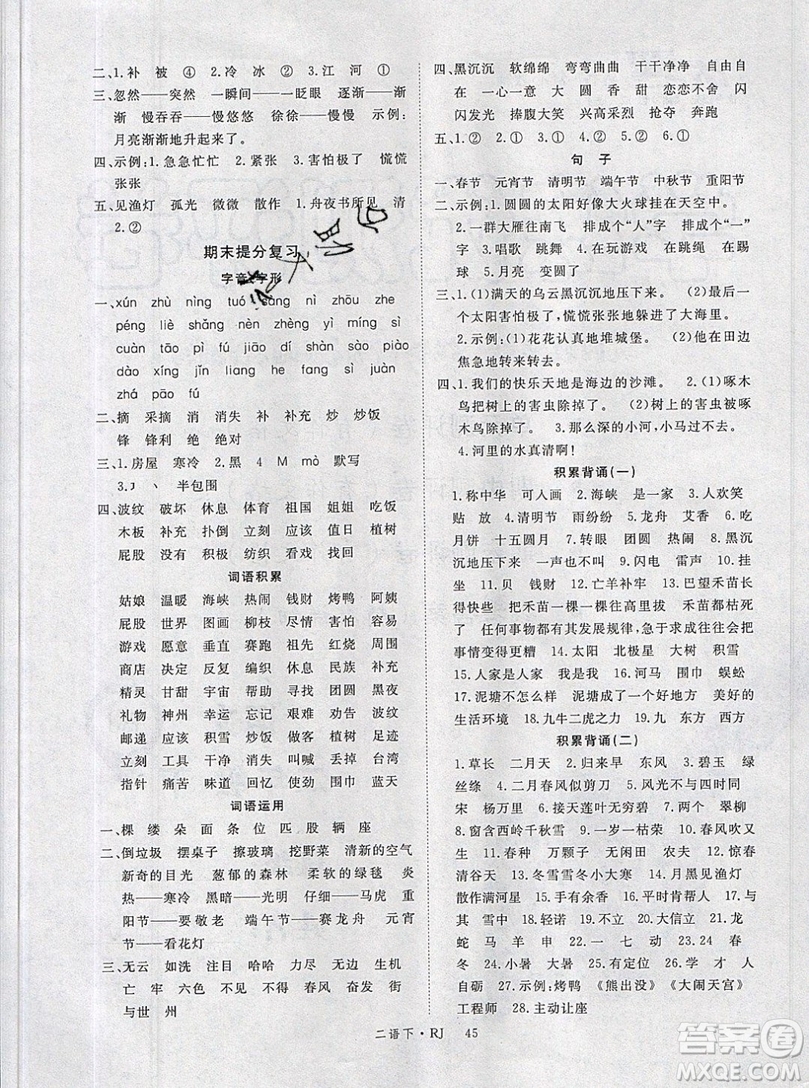 二、1.补 被 ④ 2.冷 冰 ② 3.江 河 ①
三、忽然——突然 一瞬间——一眨眼 逐渐——渐
渐 慢吞吞——慢悠悠 徐徐——慢慢 示例:
月亮渐渐地升起来了。
四、示例:1.急急忙忙 2.紧张 3.害怕极了 慌慌
张张
五、见渔灯 孤光 微微 散作 1.舟夜书所见 清
2.②
期末提分复习
字音 字形
一、xún zhù nìng tuó sǎng nì zhōu zhe
péng liè shǎng nèn zhèng yì míng sì
cuàn tǎn pàn shāng dàng kāng tí
dào xíng jìn liang heng xiǎn chán juàn
zhá pāo fú
二、摘 采摘 消 消失 补 补充 炒 炒饭
锋 锋利 绝 绝对
三、1.房屋 寒冷 2.黑 4 M mò 默写
3.丿 丶 半包围
四、波纹 破坏 休息 体育 祖国 姐姐 吃饭
木板 补充 扑倒 立刻 应该 值日 植树
屁股 没有 积极 纺织 看戏 找回
词语积累
姑娘 温暖 海峡 热闹 钱财 烤鸭 阿姨
屁股 世界 图画 柳枝 尽情 害怕 容易
游戏 愿意 垂直 赛跑 祖先 红烧 周围
商店 决定 反复 编织 休息 民族 补充
精灵 甘甜 宇宙 脂肪 寻找 团圆 黑夜
礼物 神州 幸运 忘记 艰难 劝告 波纹
邮递 应该 积雪 细致 做客 植树 足迹
立刻 工具 温带 消失 叫喊 丢掉 台湾
指针 痛苦 味道 回忆 功夫 围巾 蓝天
词语运用
一、棵 缕 朵 面 条 位 匹 股 辆 座
二、倒垃圾 摆桌子 擦玻璃 挖野菜 清新的空气
新奇的目光 葱郁的森林 柔软的绿毯 炎
热——寒冷 黑暗——光明 仔细——马虎 重
阳节——要敬老 端午节——赛龙舟 元宵
节——看花灯
三、无云 如洗 注目 哈哈 力尽 无边 生机
亡 牢 六色 不见 不觉 不绝 陡峭
与世 州
四、黑沉沉 软绵绵 弯弯曲曲 干干净净 自由自
在 一心一意 大 圆 香 甜 恋恋不舍 闪
闪发光 捧腹大笑 兴高采烈 抢夺 奔跑
五、1.② 2.① 3.① 4.② 5.② 6.①
句 子
一、春节 元宵节 清明节 端午节 中秋节 重阳节
二、示例:1.圆圆的太阳好像大火球挂在天空中。
2.一群大雁往南飞 排成个“人”字 排成个“一”
字 3.唱歌 跳舞 4.在玩游戏 在跳绳 在踢
球 5.大 变圆了
三、1.(1)满天的乌云黑沉沉地压下来。 (2)一个
太阳害怕极了,慌慌张张地躲进了大海里。
2.示例:(1)花花认真地堆城堡。 (2)他在田边
焦急地转来转去。
四、1.我们的快乐天地是海边的沙滩。 2.(1)啄木
鸟把树上的害虫除掉了。 (2)树上的害虫被啄
木鸟除掉了。 3.那么深的小河,小马过不来。
4.河里的水真清啊!
积累背诵(一)
1.称中华 可人画 2.海峡 是一家 3.人欢笑
贴 放 4.清明节 雨纷纷 5.龙舟 艾香 6.吃
月饼 十五圆月 7.转眼 团圆 圆圆 8.黑沉沉
地压下来 一声也不叫 9.闪电 雷声 10.挂
坐 11.贝 钱财 12.亡羊补牢 13.巴望禾苗长
得快些 把禾苗一棵一棵往高里拔 禾苗都枯死
了 任何事物都有发展的规律,急于求成往往会把
事情变得更糟 14.太阳 北极星 大树 积雪
15.别人是别人 我是我 16.河马 围巾 蜈蚣
17.泥塘不怎么样 泥塘成了个好地方 美好的
生活环境 18.九牛二虎之力 19.九 东方 西方
积累背诵(二)
1.草长 二月天 2.归来早 东风 3.碧玉 绿
丝绦 4.二月春风似剪刀 5.风光不与四时同
宋 杨万里 6.接天莲叶无穷碧 7.两个 翠柳
8.窗含西岭千秋雪 9.一岁一枯荣 10.春风吹又生
11.春种 万颗子 无闲田 农夫 12.惊春
清谷天 夏满芒夏暑相连 13.月黑见渔灯
散作满河星 14.平时肯帮人 急时有人帮 15.与
其 雪中 16.轻诺 17.不移 20.大信立 21.龙
蛇 马 羊 22.二 一 23.12 24 春
冬 24.小暑 大暑 25.芒 小雪 26.学 才 人
自励 27.示例:烤鸭 《熊出没》 《大闹天宫》
工程师 28.主动让座
二语下·RJ 45
答案圈
MXQE.COM